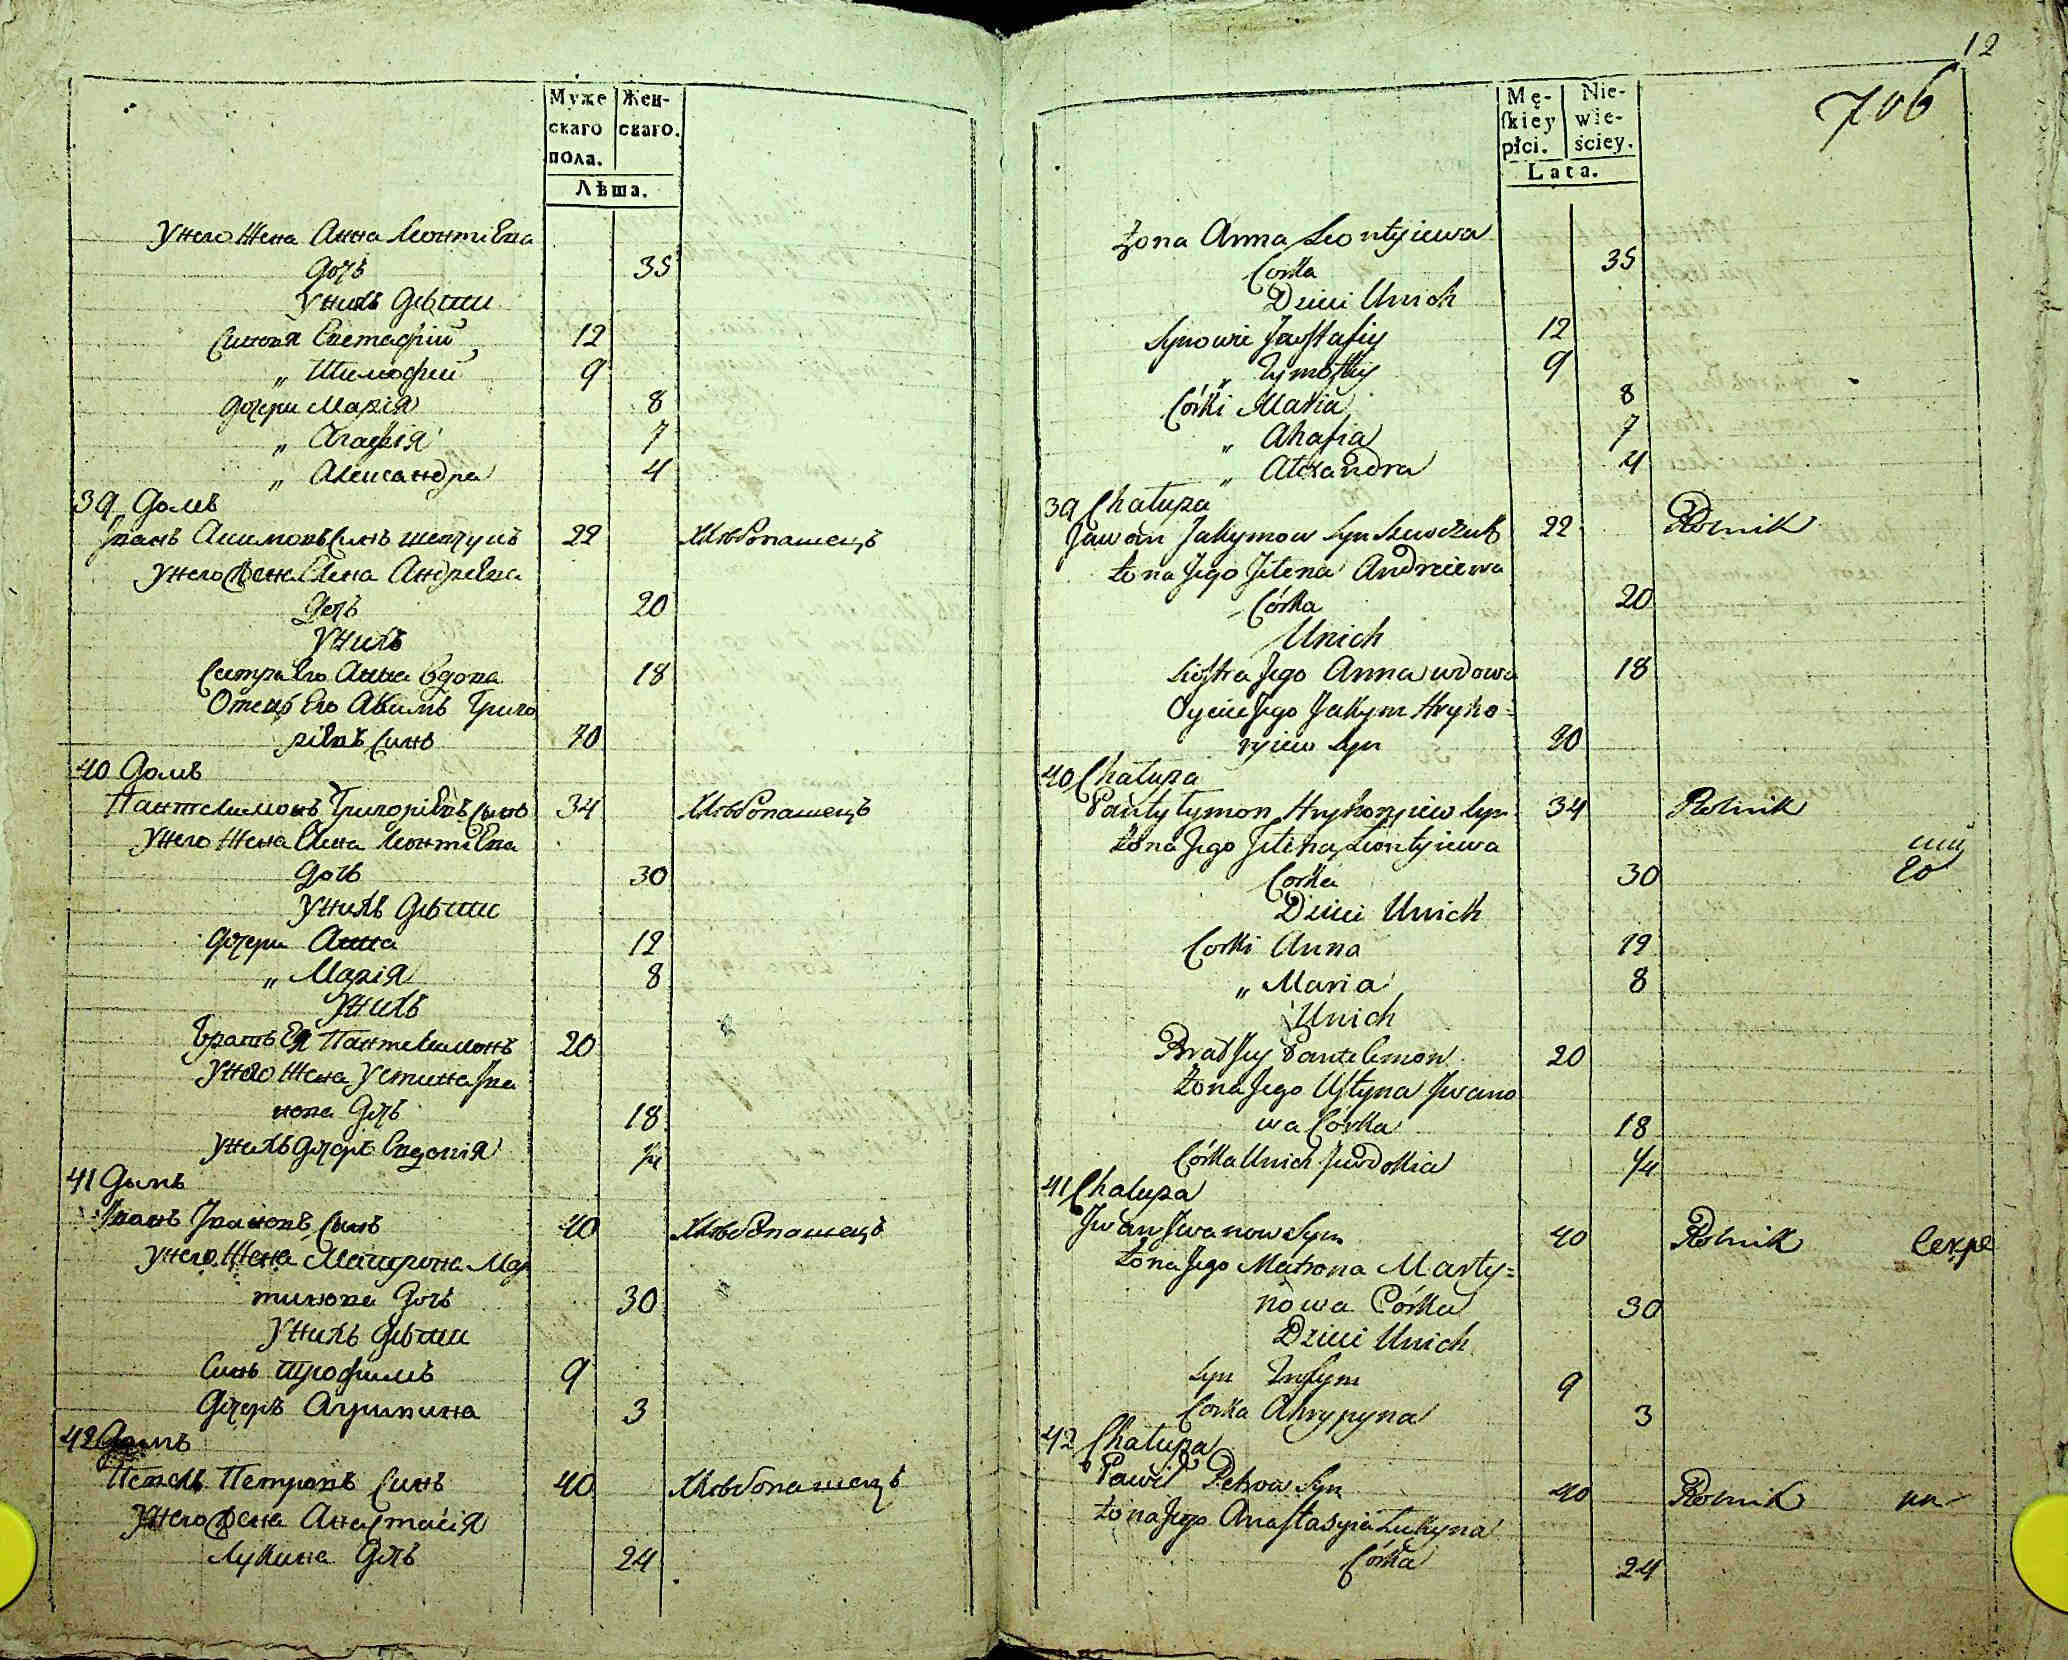 Муже
скаго
пола.
Жен-
скаго.
Лѣта.
у него жена Анна Леонтіева
дочь 35
у нихъ дѣти
Синовя Евстафій 12
„ Тимофей 9
дочери Марія 8
„ Агафія 7
„ Александра 4
39 Домъ
Іванъ Акимовъ Синъ 22 Хлѣбопашецъ
у него жена Елена Андреева
дочь 20
у нихъ
Сестра Его Анна вдова 18
Отецъ Его Акимъ Григо
ріевъ Синъ 70
40 Домъ
Пантелимонъ Григоріевъ Синъ 34 Хлѣбопашецъ
у него жена Елена Леонтіева
дочь 30
у нихъ дѣти
дочери Анна 12
„ Марія 8
у нихъ
Братъ Ея Пантелимонъ 20
у него жена Устина Іва
нова дочь 18
у нихъ дочерь Евдокія 1/4
41 Домъ
Іванъ Івановъ Синъ 40 Хлѣбопашецъ
у него жена Матрона Мар
тинова дочь 30
у нихъ дѣти
Синъ Трофимъ 9
дочерь Агрипина 3
42 Домъ
Петровъ Синъ 40 Хлѣбопашецъ
у него жена Анастасія
Лукина дочь 24
12
706
Mę-
skiey
płci.
Nie-
wie-
ściey.
Lata.
Żona Anna Leontyiewa
Corka 35
Dzieci Unich
Synowie Jewstafiy 12
„ Tymofiey 9
Córki Maria 8
„ Ahafia 7
„ Alexandra 4
39 Chałupa
Jawan Jakymow Syn Szewczuk 22 Rolnik
Żona Jego Jelena Andreiewa
Córka 20
Unich
Siostra Jego Anna wdowa 18
Oyciec Jego Jakym Hryho=
ryiew Syn 70
40 Chałupa
Pantylymon Hryhoryiew Syn 34 Rolnik
Żona Jego Jelena Leontyiewa
Corka 30
Dzieci Unich
Corki Anna 12
„ Maria 8
Unich
Brat Jey Pantelemon 20
Żona Jego Ustyna Jwano
wa Córka 18
Córka Unich Jewdokia 1/4
41 Chałupa
Jwan Jwanow Syn 40 Rolnik
Żona Jego Matrona Marty=
nowa Córka 30
Dzieci Unich
Syn Trofym 9
Corka Ahrypyna 3
42 Chałupa
Pawil Petrow Syn 40 Rolnik
Żona Jego Anastasyia Łukyna
Córka 24